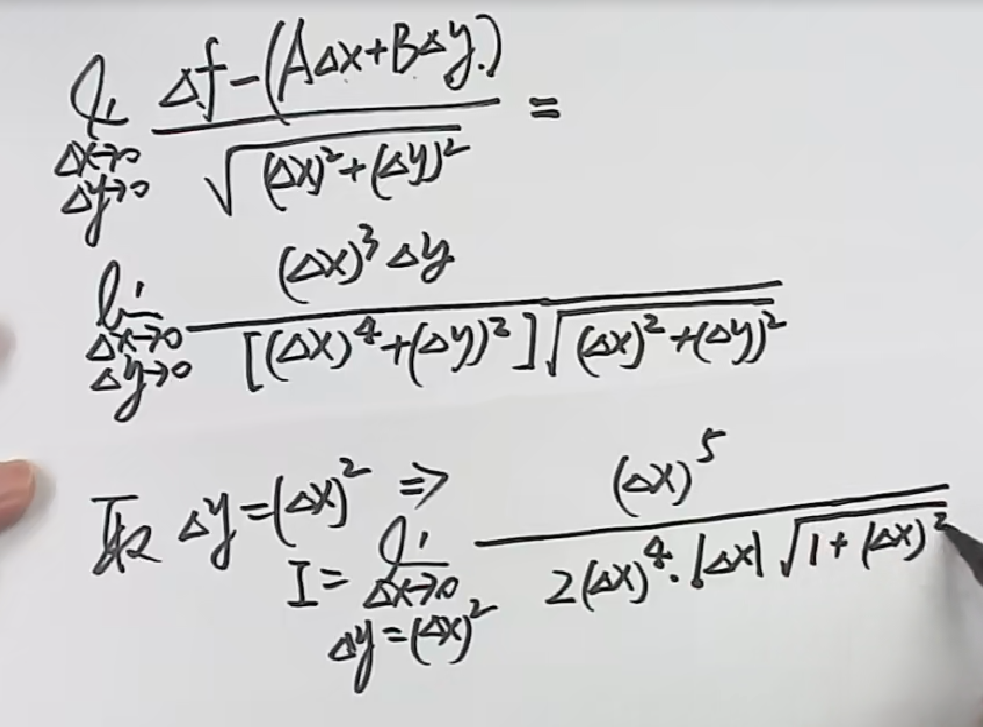 lim Δx→0 Δy→0 (Δf-(AΔx+BΔy))/√((Δx)²+(Δy)²) =
lim Δx→0 Δy→0 (Δx)³Δy/([(Δx)⁴+(Δy)²]√((Δx)²+(Δy)²))
取 Δy=(Δx)² ⇒
I= lim Δx→0 Δy=(Δx)² (Δx)⁵/(2(Δx)⁴·|Δx|√(1+(Δx)²))